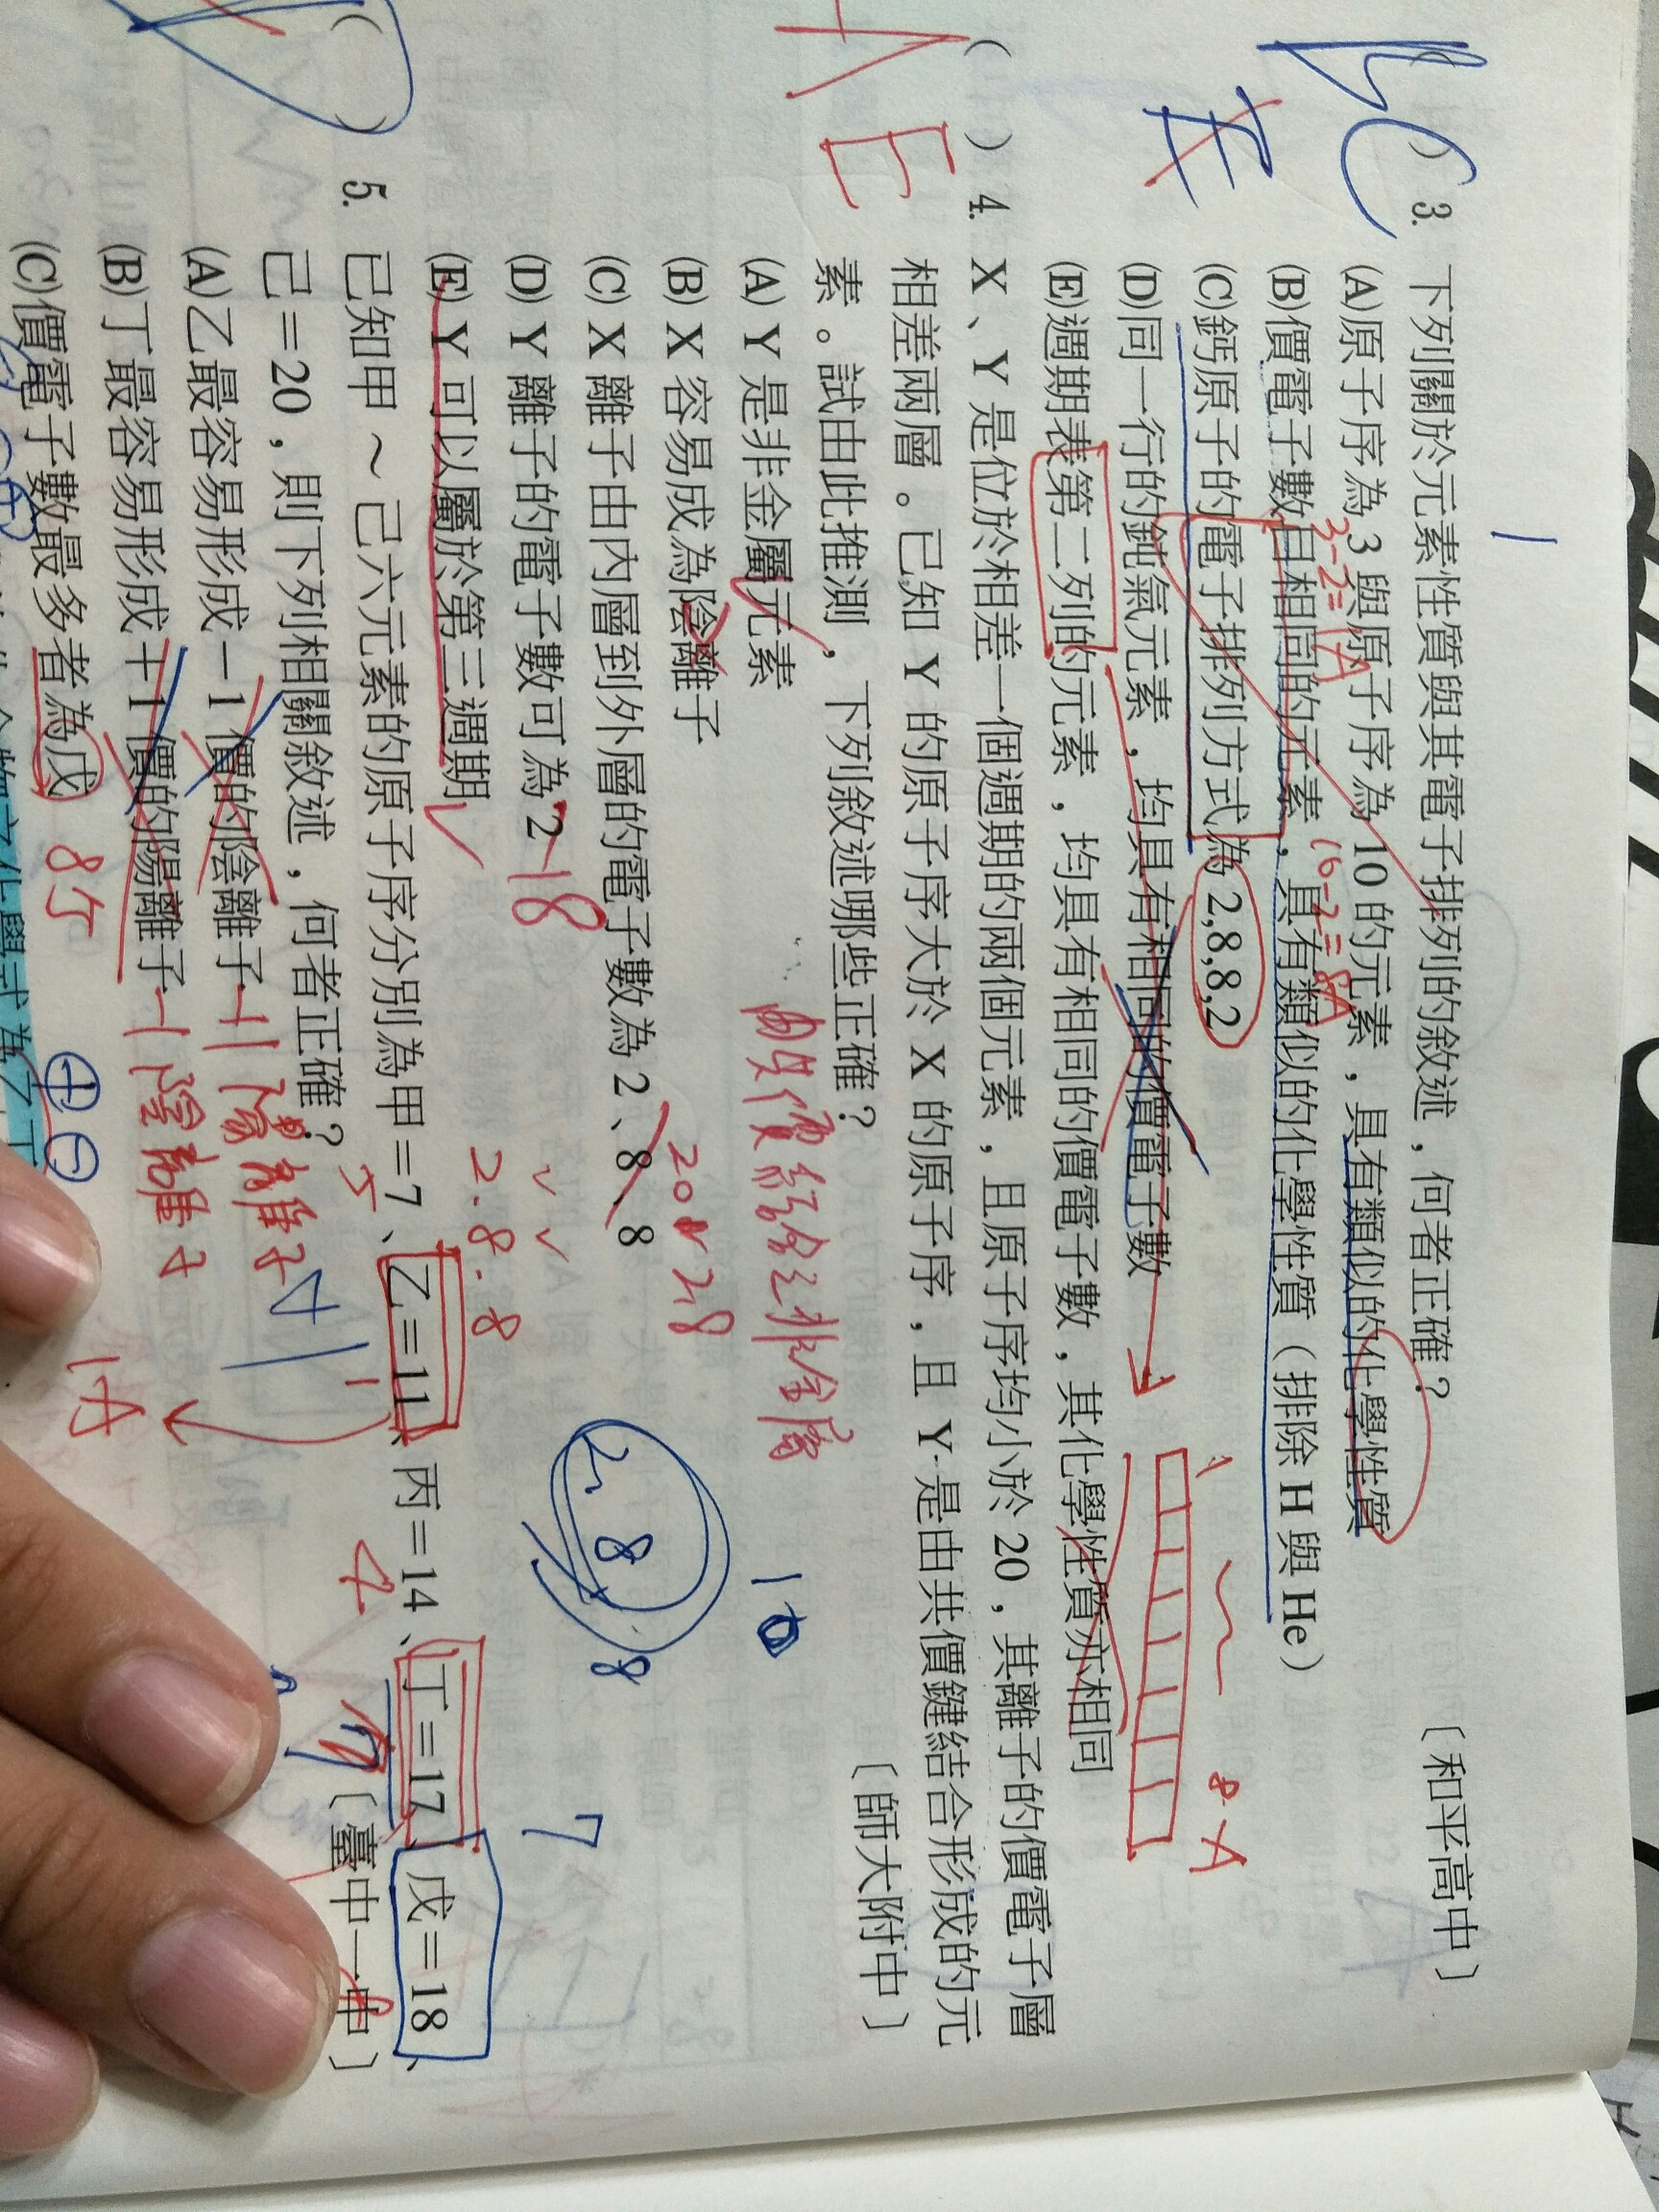 1
BC
E
( ) 3. 下列關於元素性質與其電子排列的敘述，何者正確？ 〔和平高中〕
(A)原子序為 3 與原子序為 10 的元素，具有類似的化學性質
3-2=1A
(B)價電子數目相同的元素，具有類似的化學性質（排除 H 與 He）
(C)鈣原子的電子排列方式為 2,8,8,2
(D)同一行的鈍氣元素，均具有相同的價電子數
8A
(E)週期表第二列的元素，均具有相同的價電子數，其化學性質亦相同
AE
( ) 4. X、Y 是位於相差一個週期的兩個元素，且原子序均小於 20，其離子的價電子層
相差兩層。已知 Y 的原子序大於 X 的原子序，且 Y 是由共價鍵結合形成的元
素。試由此推測，下列敘述哪些正確？ 〔師大附中〕
(A) Y 是非金屬元素
10
(B) X 容易成為陰離子
2 8
(C) X 離子由內層到外層的電子數為 2、8、8
2 8 8
(D) Y 離子的電子數可為 2
18
7
(E) Y 可以屬於第三週期
2.8.8
( ) 5. 已知甲～己六元素的原子序分別為甲＝7、乙＝11、丙＝14、丁＝17、戊＝18、
己＝20，則下列相關敘述，何者正確？ 〔臺中一中〕
(A)乙最容易形成－1 價的陰離子
+1 陽離子
(B)丁最容易形成＋1 價的陽離子
-1 陰離子
1A
(C)價電子數最多者為戊
8個